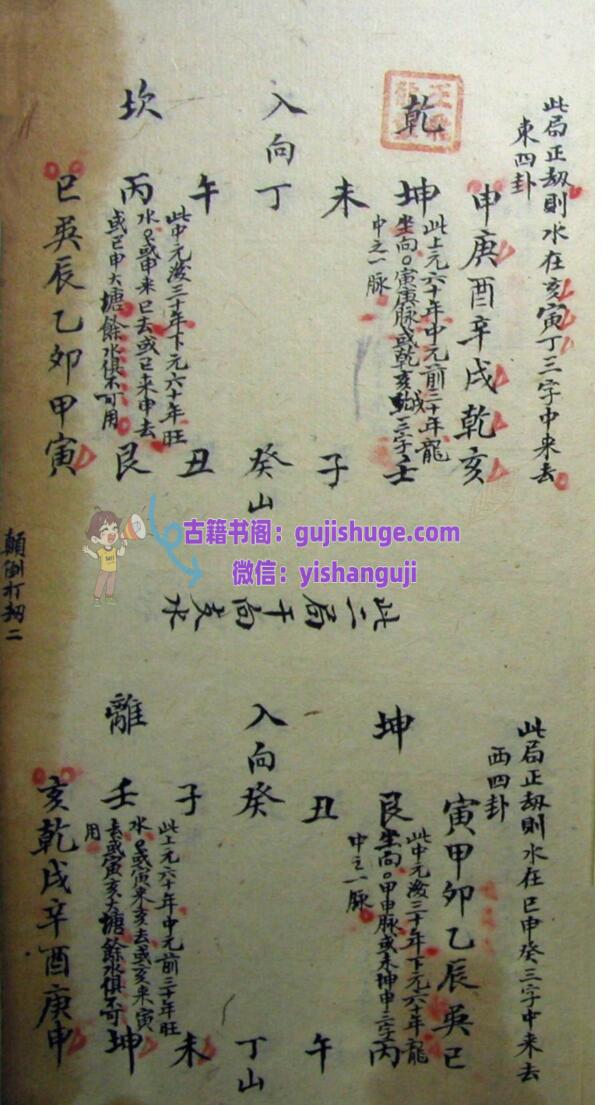 此局正劫則水在亥寅丁三字中來去
東四卦
乾
入向
坎
申庚酉辛戌乾亥
坤
未
丁
午
丙
巳巽辰乙卯甲寅
此上元六十年中元前三十年龍
坐向○寅庚脉或乾亥
三字
中之一脉
壬
子
癸山
丑
艮
此中元後三十年下元六十年旺
水○或申来巳去或巳来申去
或巳申大塘餘水俱不可用
古籍书阁：gujishuge.com
微信：yishanguji
此二局干向支水
顛倒打劫二
此局正劫則水在巳申癸三字中来去
西四卦
坤
入向
離
寅甲卯乙辰巽巳
艮
丑
癸
子
壬
亥乾戌辛酉庚申
此中元後三十年下元六十年龍
坐向○甲申脉或未坤申三字
中之一脉
丙
午
丁山
未
坤
此上元六十年中元前三十年旺
水○或寅来亥去或亥来寅
去或寅亥大塘餘水俱不可
用